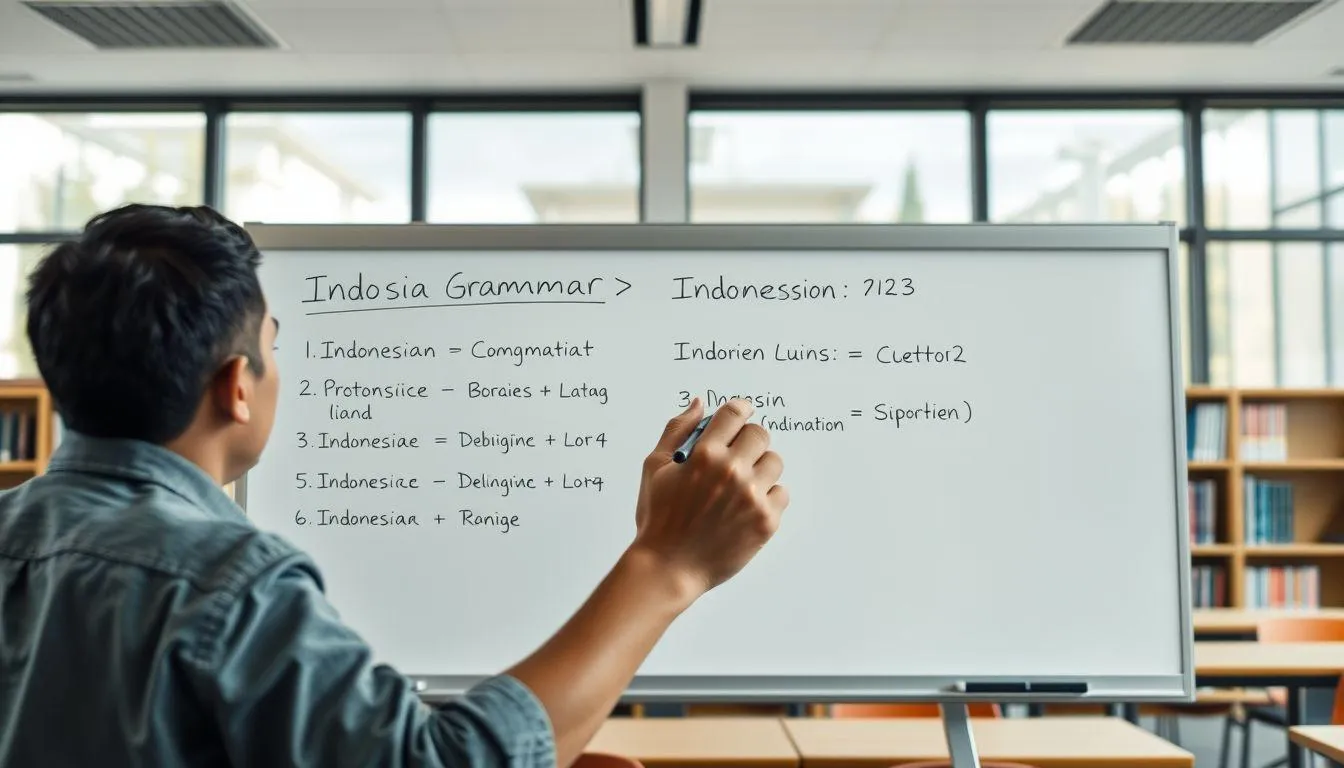 Indosia Grammar >
1. Indonesian = Comgmatiat
2. Protonsiice - Boraies + Latag
liand
3. Indonesiae = Debiigine + Lor4
5. Indonesiae - Delingiue + Lor4
6. Indonesiaa + Ranige
Indonession: 7123
Indorien Luins: = Cuettor2
3.
= Siportien)